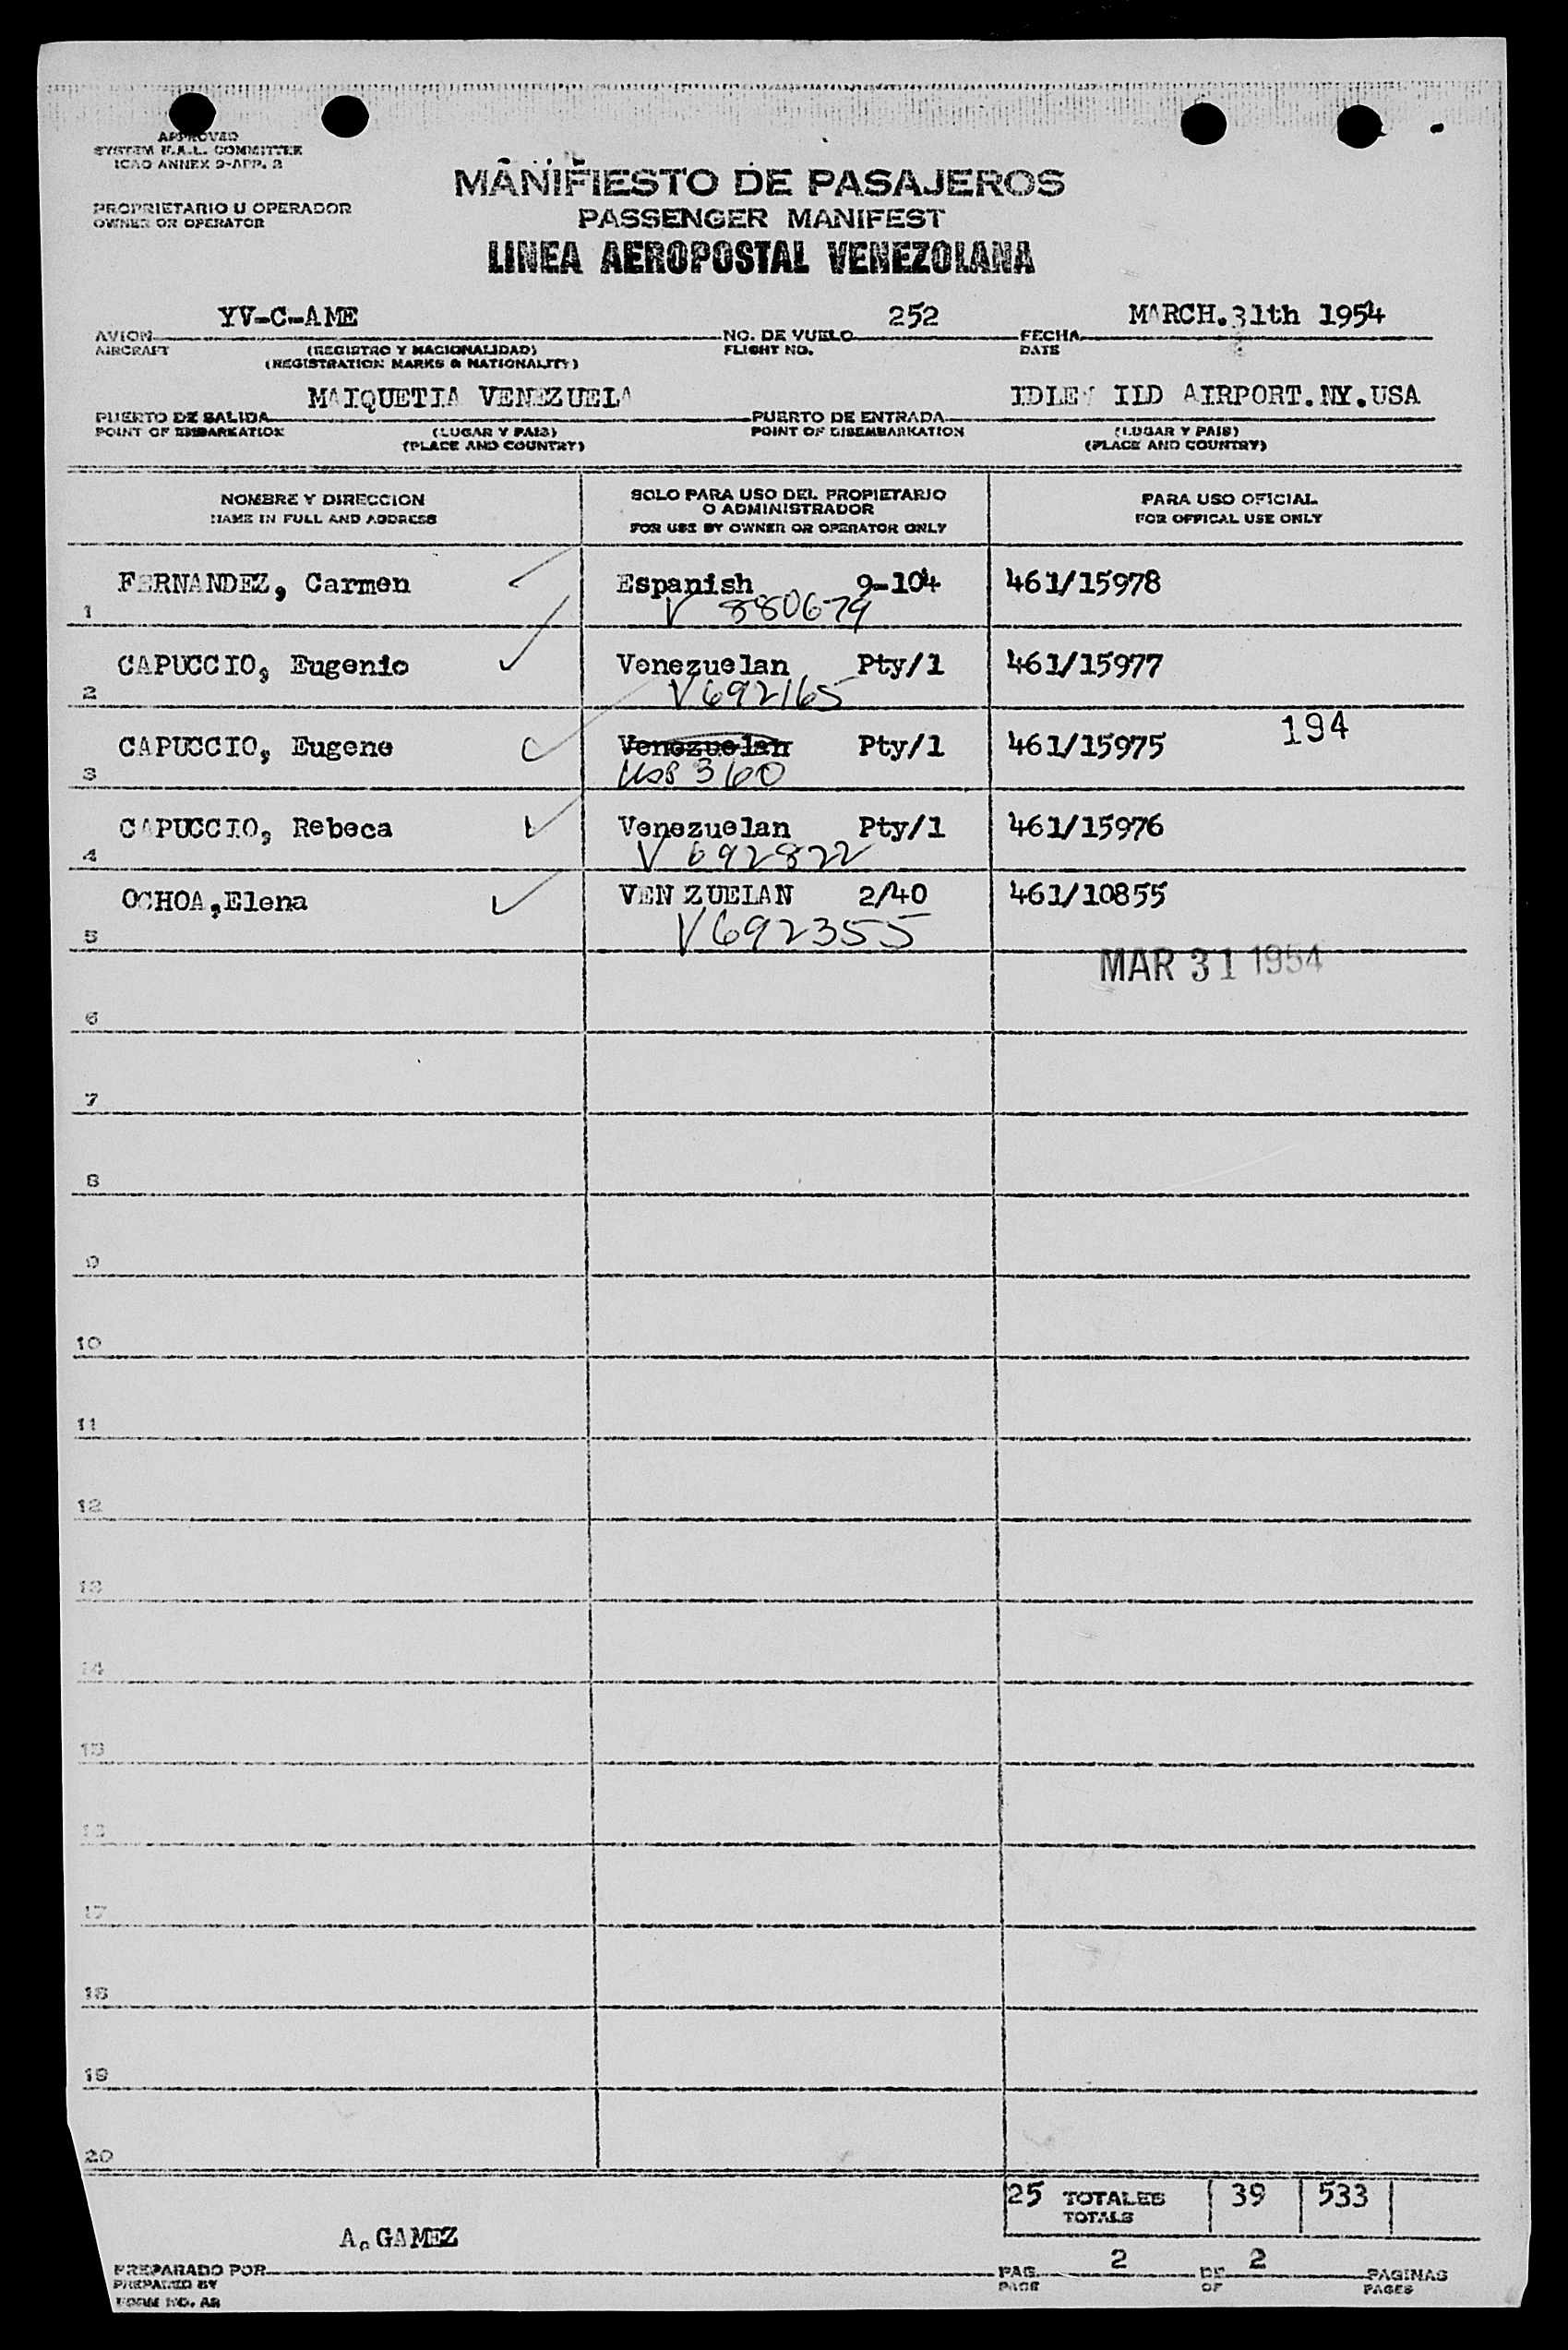 APPROVED
SYSTEM F.A.L. COMMITTEE
ICAO ANNEX 9-APP. 3
MANIFIESTO DE PASAJEROS
PROPRIETARIO U OPERADOR
OWNER OR OPERATOR
PASSENGER MANIFEST
LINEA AEROPOSTAL VENEZOLANA
YV-C-AME 252 MARCH.31th 1954
AVION NO. DE VUELO FECHA
AIRCRAFT (REGISTRO Y NACIONALIDAD) FLIGHT NO. DATE
(REGISTRATION MARKS & NATIONALITY)
MAIQUETIA VENEZUELA IDLEW ILD AIRPORT.NY.USA
PUERTO DE SALIDA PUERTO DE ENTRADA
POINT OF EMBARKATION (LUGAR Y PAIS) POINT OF DISEMBARKATION (LUGAR Y PAIS)
(PLACE AND COUNTRY) (PLACE AND COUNTRY)
NOMBRE Y DIRECCION SOLO PARA USO DEL PROPIETARIO PARA USO OFICIAL
O ADMINISTRADOR
NAME IN FULL AND ADDRESS FOR USE BY OWNER OR OPERATOR ONLY FOR OFFICAL USE ONLY
FERNANDEZ, Carmen Espanish 9-104 461/15978
1 V 880679
CAPUCCIO, Eugenio Venezuelan Pty/1 461/15977
2 V692165
194
CAPUCCIO, Eugene Venezuelan Pty/1 461/15975
3 360
CAPUCCIO, Rebeca Venezuelan Pty/1 461/15976
4 V 692822
OCHOA,Elena VEN ZUELAN 2/40 461/10855
5 V692355
MAR 31 1954
6
7
8
9
10
11
12
13
14
15
16
17
18
19
20
25 TOTALES 39 533
TOTALS
A. GAMEZ
2 2
PREPARADO POR PAG. DE PAGINAS
PREPARED BY PAGE OF PAGES
FORM NO. AR